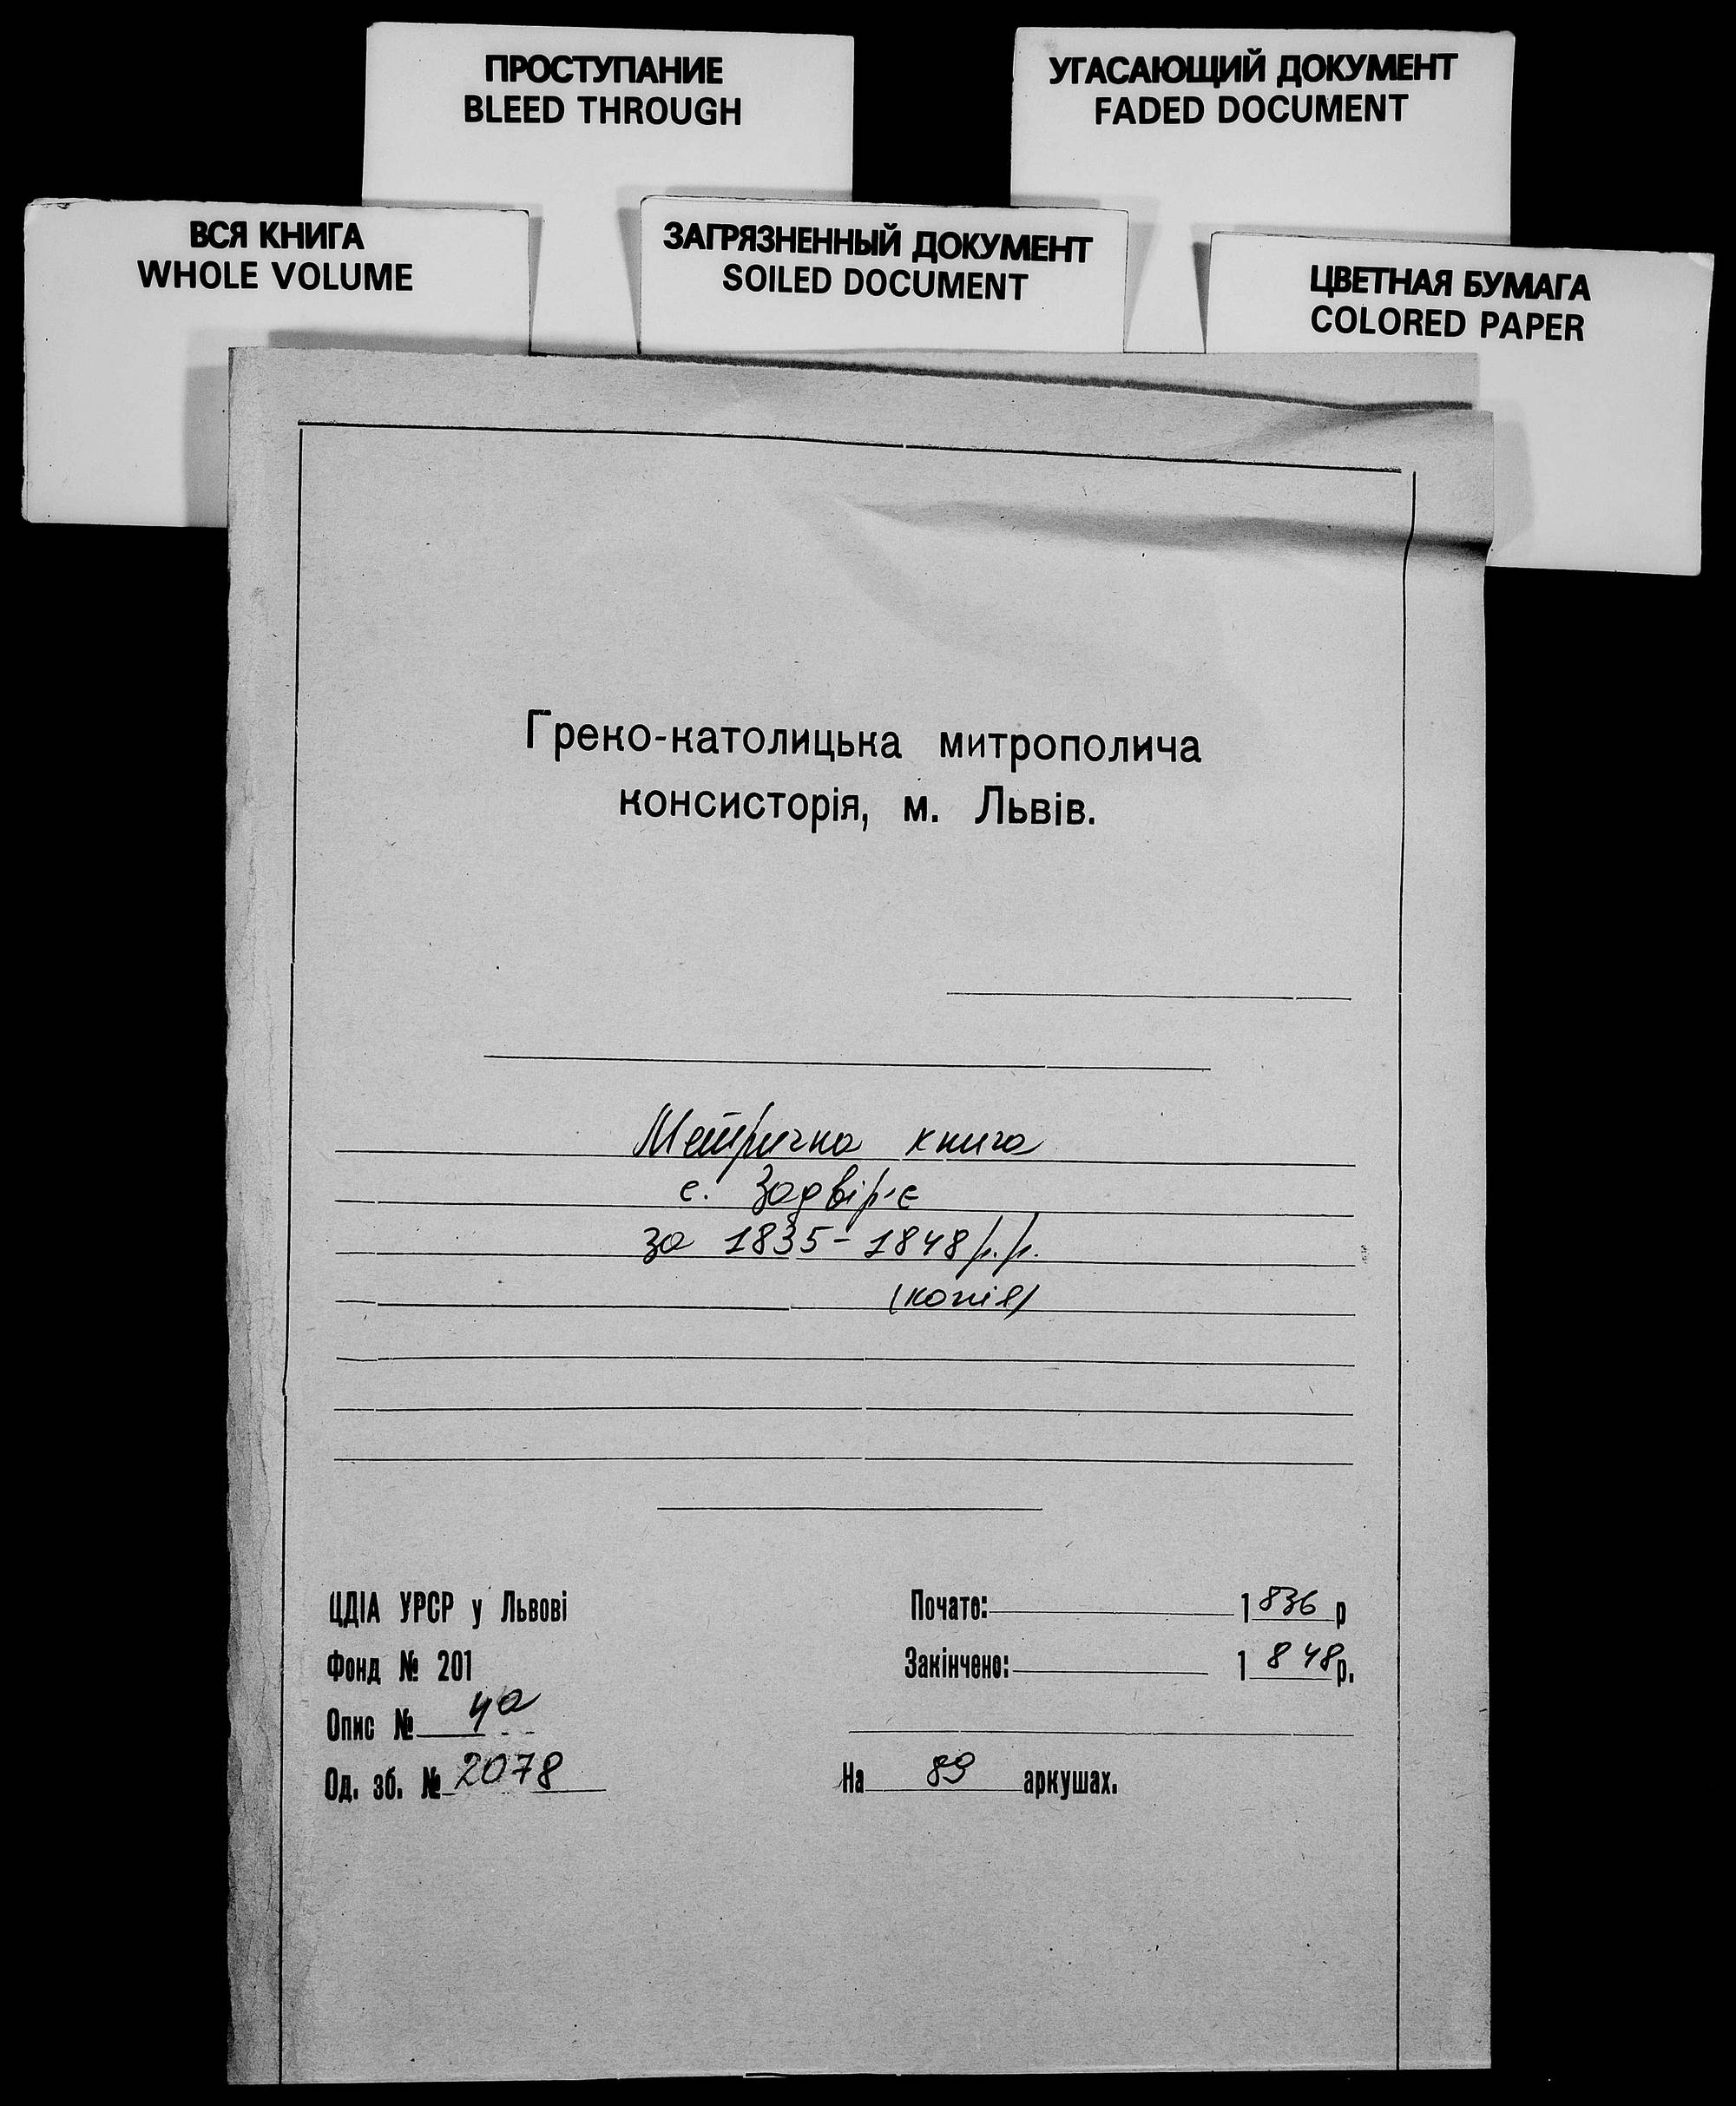 ПРОСТУПАНИЕ
BLEED THROUGH
УГАСАЮЩИЙ ДОКУМЕНТ
FADED DOCUMENT
ВСЯ КНИГА
WHOLE VOLUME
ЗАГРЯЗНЕННЫЙ ДОКУМЕНТ
SOILED DOCUMENT
ЦВЕТНАЯ БУМАГА
COLORED PAPER
Греко-католицька митрополича
консисторія, м. Львів.
Метрична книга
с. Задвір'є
за 1835-1848 р.р.
(копія)
ЦДІА УРСР у Львові
Фонд № 201
Опис № 4а
Од. зб. № 2078
Почато: 1836 р
Закінчено: 1848 р.
На 89 аркушах.